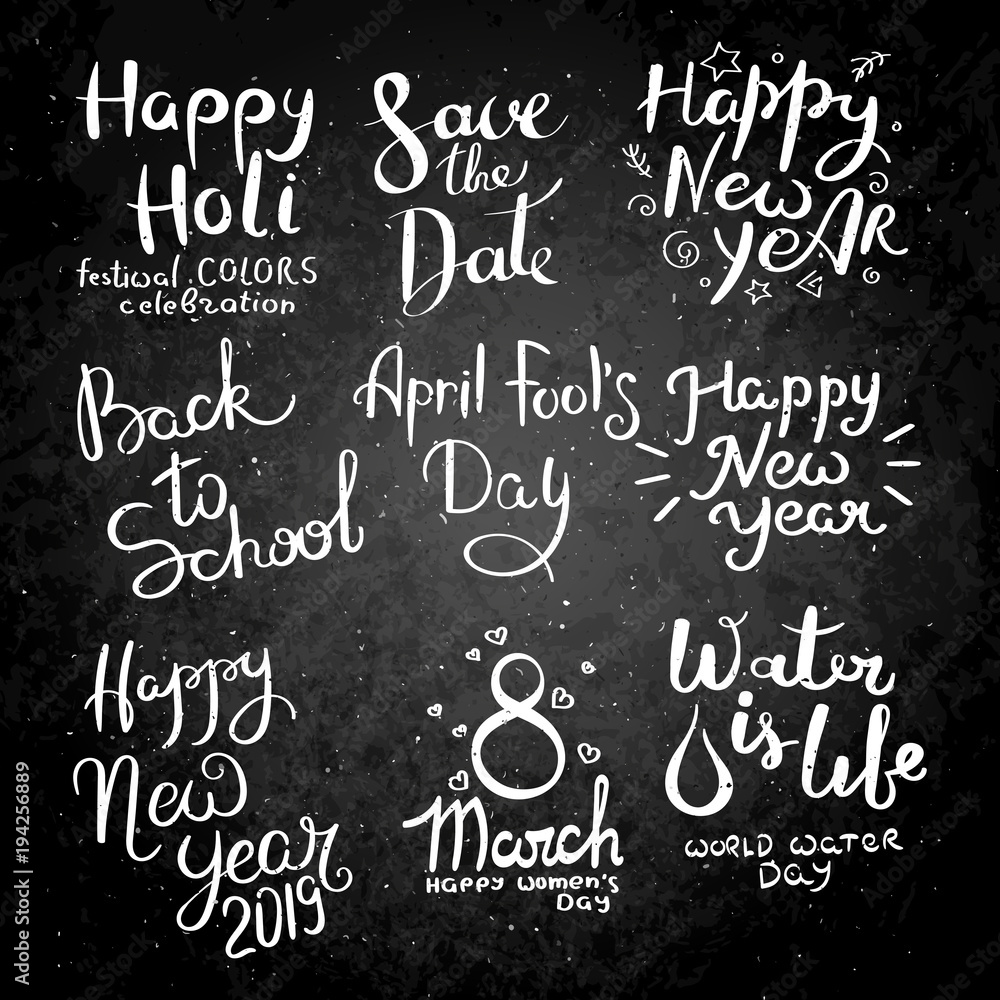 Happy
Holi
festiwal.COLORS
celebration
Save
the
Date
Happy
New
yeAR
Back
to
School
April Fool's
Day
Happy
New
year
Happy
New
year
2019
8
March
HAPPY WOMEN'S
DAY
Water
is life
WORLD WATER
DAY
Adobe Stock | #194256889